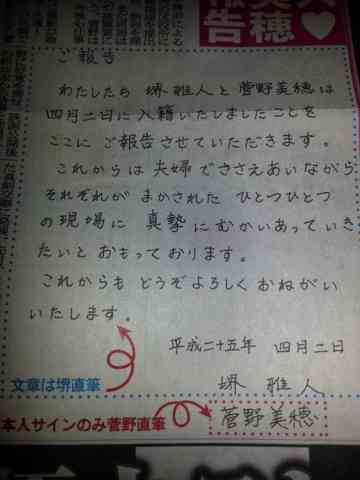 美穂
告
ご報告
わたしたち 堺雅人と菅野美穂は
四月二日に入籍いたしましたことを
ここに ご報告させていただきます。
これからは夫婦でささえあいながら
それぞれがまかされた ひとつひとつ
の現場に 真摯にむかいあっていき
たいとおもっております。
これからも どうぞよろしくおねがい
いたします。
平成二十五年 四月二日
堺 雅人
菅野美穂
文章は堺直筆
本人サインのみ菅野直筆